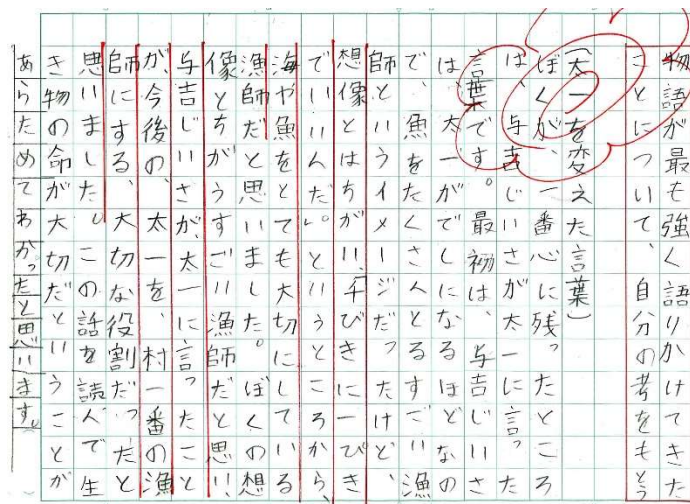 物語が最も強く語りかけてきた
ことについて、自分の考をもとう
(太一を変えた言葉)
ぼくが、一番心に残ったところ
は、与吉じいさが太一に言った
言葉です。最初は、与吉じいさ
は、太一がでしになるほどなの
で、魚をたくさんとるすごい漁
師というイメージだったけど、
想像とはちがい、「千びきに一ぴき
でいいんだ。」というところから、
海や魚をとても大切にしている
漁師だと思いました。ぼくの想
像とちがうすごい漁師だと思い、
与吉じいさが、太一に言ったこと
が、今後の、太一を、村一番の漁
師にする、大切な役割だったと
思いました。この話を読んで生
き物の命が大切だということが
あらためてわかったと思います。